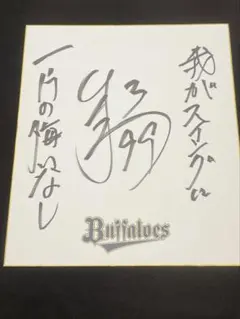 我がスイングに
一片の悔いなし
99
Buffaloes